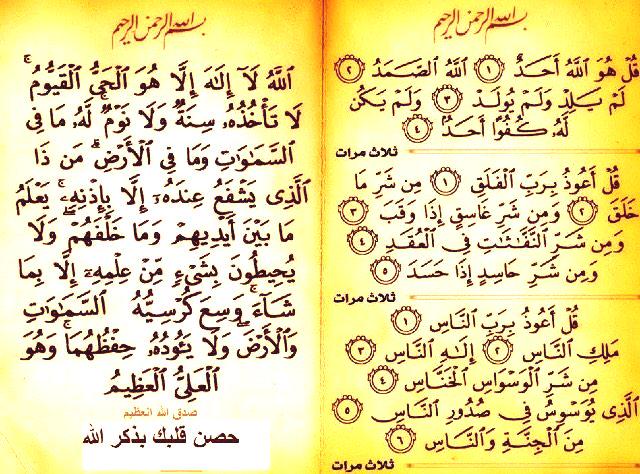 بسم الله الرحمن الرحيم
قُلْ هُوَ ٱللَّهُ أَحَدٌ ١ ٱللَّهُ ٱلصَّمَدُ ٢
لَمْ يَلِدْ وَلَمْ يُولَدْ ٣ وَلَمْ يَكُن
لَّهُۥ كُفُوًا أَحَدٌۢ ٤
ثلاث مرات
قُلْ أَعُوذُ بِرَبِّ ٱلْفَلَقِ ١ مِن شَرِّ مَا
خَلَقَ ٢ وَمِن شَرِّ غَاسِقٍ إِذَا وَقَبَ ٣
وَمِن شَرِّ ٱلنَّفَّٰثَٰتِ فِى ٱلْعُقَدِ ٤
وَمِن شَرِّ حَاسِدٍ إِذَا حَسَدَ ٥
ثلاث مرات
قُلْ أَعُوذُ بِرَبِّ ٱلنَّاسِ ١
مَلِكِ ٱلنَّاسِ ٢ إِلَٰهِ ٱلنَّاسِ ٣
مِن شَرِّ ٱلْوَسْوَاسِ ٱلْخَنَّاسِ ٤
ٱلَّذِى يُوَسْوِسُ فِى صُدُورِ ٱلنَّاسِ ٥
مِنَ ٱلْجِنَّةِ وَٱلنَّاسِ ٦
ثلاث مرات
بسم الله الرحمن الرحيم
ٱللَّهُ لَآ إِلَٰهَ إِلَّا هُوَ ٱلْحَىُّ ٱلْقَيُّومُ ۚ
لَا تَأْخُذُهُۥ سِنَةٌ وَلَا نَوْمٌ ۚ لَّهُۥ مَا فِى
ٱلسَّمَٰوَٰتِ وَمَا فِى ٱلْأَرْضِ ۗ مَن ذَا
ٱلَّذِى يَشْفَعُ عِندَهُۥٓ إِلَّا بِإِذْنِهِۦ ۚ يَعْلَمُ
مَا بَيْنَ أَيْدِيهِمْ وَمَا خَلْفَهُمْ ۖ وَلَا
يُحِيطُونَ بِشَىْءٍ مِّنْ عِلْمِهِۦٓ إِلَّا بِمَا
شَآءَ ۚ وَسِعَ كُرْسِيُّهُ ٱلسَّمَٰوَٰتِ
وَٱلْأَرْضَ ۖ وَلَا يَـُٔودُهُۥ حِفْظُهُمَا ۚ وَهُوَ
ٱلْعَلِىُّ ٱلْعَظِيمُ
صدق الله العظيم
حصن قلبك بذكر الله